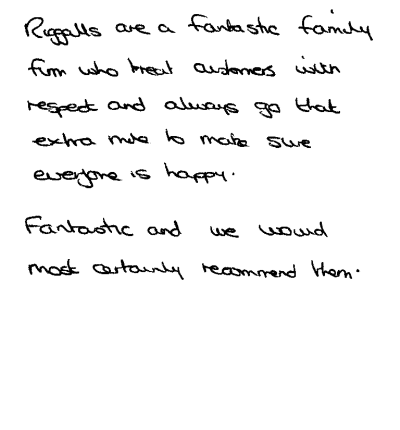 Riggalls are a fantastic family
firm who treat customers with
respect and always go that
extra mile to make sure
everyone is happy.
Fantastic and we would
most certainly recommend them.